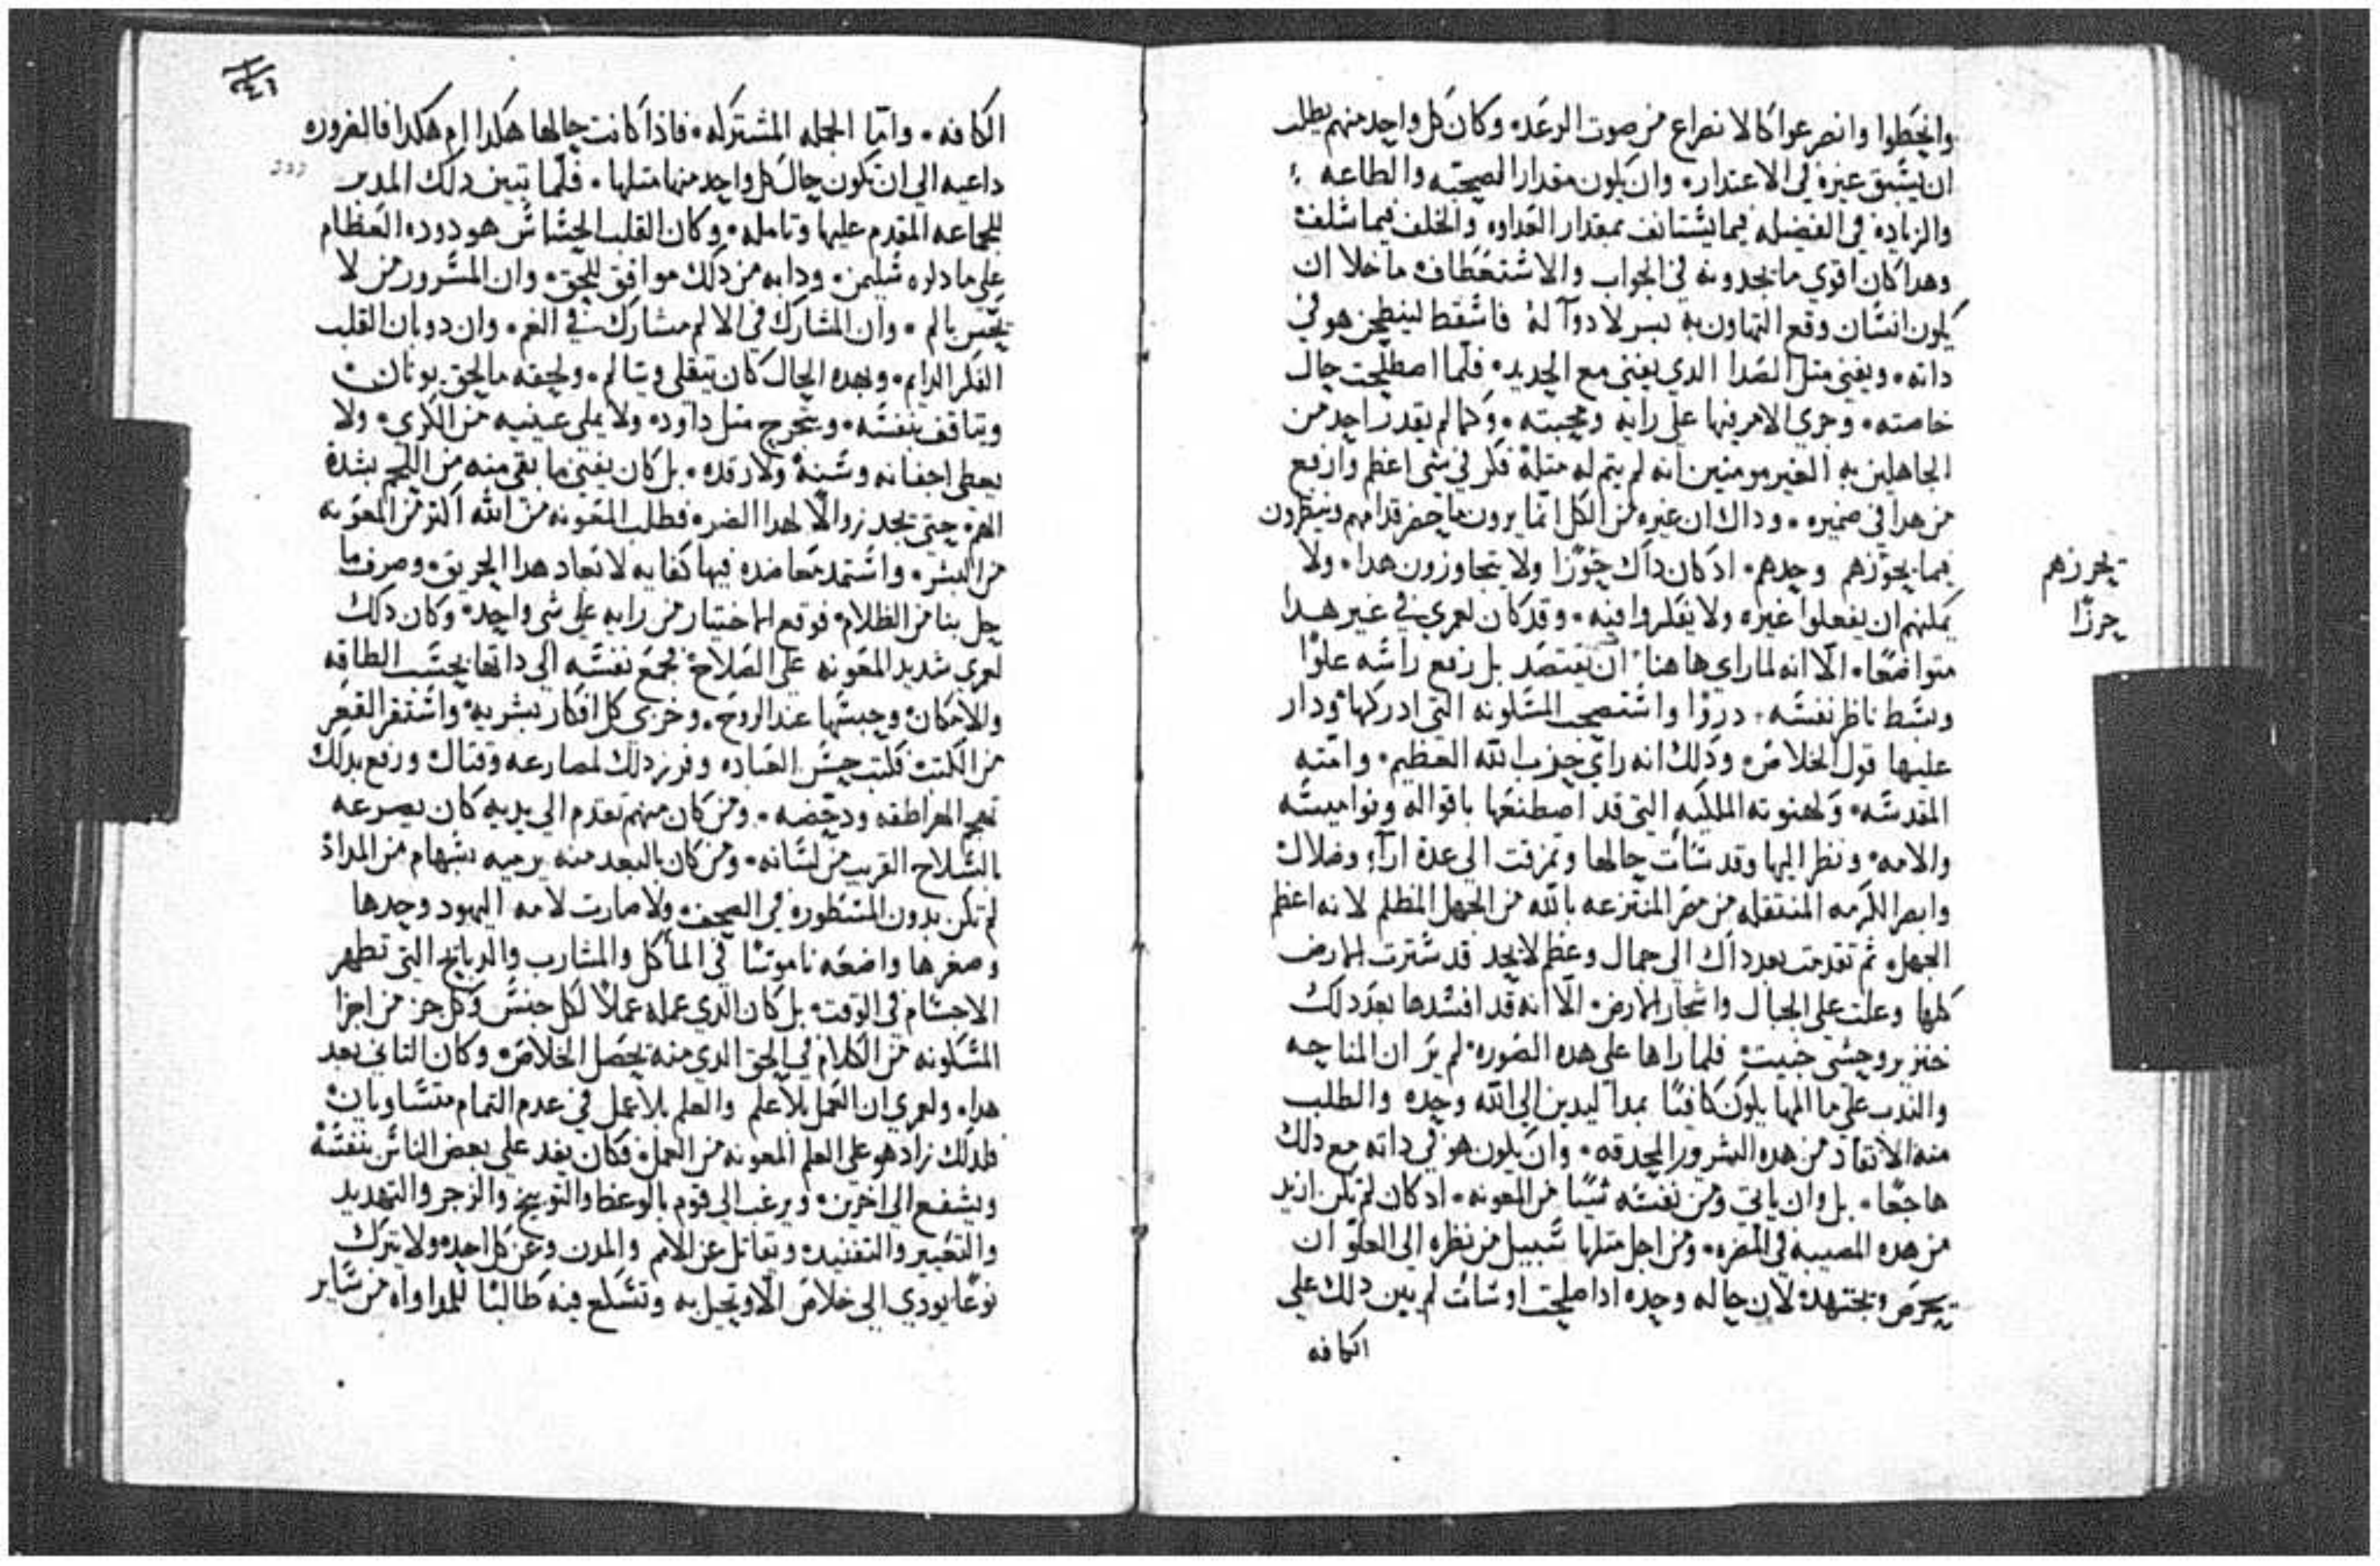 وانحَطوا وانصرعوا كالانصراع من صوت الرعَد، وكان كل واحد منهم يطلب
ان يسَبق غيره في الاعتدار، وان يكون مقدار الصحبه والطاعه
والزياده في الفضيله فيما يسَتانف بمقدار العَداوه والخلف فيما سَلف
وهدا كان اقوي ما يجدونه في الجواب والاسَتعَطاف ما خلا ان
يكون انسَان وقع التهاون به بسر لا دوآ لهُ فاسَقط لينطحن هو في
داته، ويفني متل الصَدا الدي يفني مع الحديد، فلما اصطلحت حال
خاصته، وجري الامر فيها علي رايه ومحبته، وكما لم يقدر احد من
الجاهلين به الغير مومنين انه لم يتم له متلهُ فكر في شي اعظم وارفع
من هدا في ضميره، وداك ان غيره من الكل انما يرون ما حضر قدامهم وينظرون
فيما يحوّزهم وحدهم، ادكان داك حَوزًا ولا يتجاوزون هدا، ولا
يمكنهم ان يفعلوا غيره ولا يفكروا فيه، وقد كان لعمري في غير هدا
متواضعًا، الّا انه لما راي هاهنا ان يقتصَد بل رفع راسَه علوًا
وبسَط ناظر نفسَه، دورًا واسَتصحب المسَكونه التي ادركها ودار
عليها قول الخلاص، ودلك انه راي حزب الله العظيم، وامته
المقدسَه، وكهنوته الملكيه التي قد اصطنعَها باقواله ونواميسَه
والامه، ونظر اليها وقد سَات حالها وتمزقت الي عدة ارآء وضلال
وابصر الكرمه المنتقله من مصر المنتزعه بالله من الجهل المظلم لانه اعظم
الجهل، تم تقدمت بعد داك الي جمال وعظم لا يحد قد سَترت الارض
كلها وعلت علي الجبال واشجار الارض، الّا انه قد افسَدها بعدَ دلك
خنزير وحشي خبيت، فلما راها علي هده الصَوره، لم يرَ ان المناحه
والندب علي ما المها يكون كافيًا بمدا ليدين الي الله وحده والطلب
منه الانقاد من هده الشرور المحدقه، وان يكون هو في داته مع دلك
هاجعًا، بل وان ياتي ومن نفسَه شيًا من المعونه، ادكان لم يكن ازيد
من هده المصيبه في المضره، ومن اجل متلها سَبيل من نظره الي العلوّ ان
يحرَص ويجتهد، لان حاله وحده ادا صلحت او سَات لم يبن دلك علي
الكافه
يحرزهم
حرزًا
الكافه، وامّا الجمله المشتركه، فاداكانت حالها هكدا ام هكدا فالضروره
داعيه الي ان تكون حال كل واحد منها متلها، فلّما تبين دلك المدبر
للجماعه المقدم عليها وتامله، وكان القلب الحسَاسَ هو دوده العظام
علي ما دلوه سَليمن، ودابه من دلك موافق للحق، وان المسَرور من لا
يحَسَ بالم، وان المشارك في الالم مشارك في الغم، وان دوبان القلب
الفكر الدايم، وبهده الحال كان يتقلي ويتالم، ولحقه ما لحق يونان
ويتاقف بنفسَه، ويتحرج متل داود، ولا يملي عينيه من الكري، ولا
يعطي اجفانه وسَنهُ ولا رقده، بل كان يفني ما بقي منه من اللحم بشدة
الهم، حتي يجد زوالًا لهدا الضر، فطلب المعَونه من الله اكتر من المعَونه
من البشر، واسَتمد معَاضده فيها كفايه لانقاد هدا الحريق، وصرف ما
حل بنا من الظلام، فوقع الاختيار من رايه علي شي واحد، وكان دلك
لعمري شديد المعَونه علي الصَلاح فجمع نفسَه الي داتها بحسَب الطاقه
والامكان، وحبسَها عند الروح، وخربي كل افكار بشريه، واسَتفر القعَر
من الكتب، فكتب حسَن العَباده وفرز دلك لمصارعه وقتال ورفع بدلك
تهجم الهراطقه ودحَضه، ومن كان منهم تقدم الي يديه كان يصرعه
بالسَلاح القريب من لسَانه، ومن كان بالبعد منه يرميه بسَهام من المداد
لم تكن بدون المسَطوره في الصحف، ولا صارت لامه اليهود وحدها
وصغرها واضعَه ناموسَا في المأكل والمشارب والدبايح التي تطهر
الاجسَام في الوقت، بل كان الدي عمله عملًا لكل جنسَ وكل جز من اجزا
المسَكونه من الكلام في الحق الدي منه يحصَل الخلاص، وكان التاني بعد
هدا، ولعمري ان العَمل بلا علم والعلم بلا عمل في عدم التمام متسَاويان
فلدلك زاد هو علي العلم المعونه من العمل، فكان يفد علي بعض الناسَ بنفسَهُ
ويشفع الي اخرين، ويرغب الي قوم بالوعظ والتوبيخ والزجر والتهديد
والتعَيير والتفنيد، ويقاتل عن الامم والمدن وعن كل احد، ولا يترك
نوعًا يودي الي خلاص الّا وتحيل به وتسَكع فيه طالبًا للمداواه من سَاير